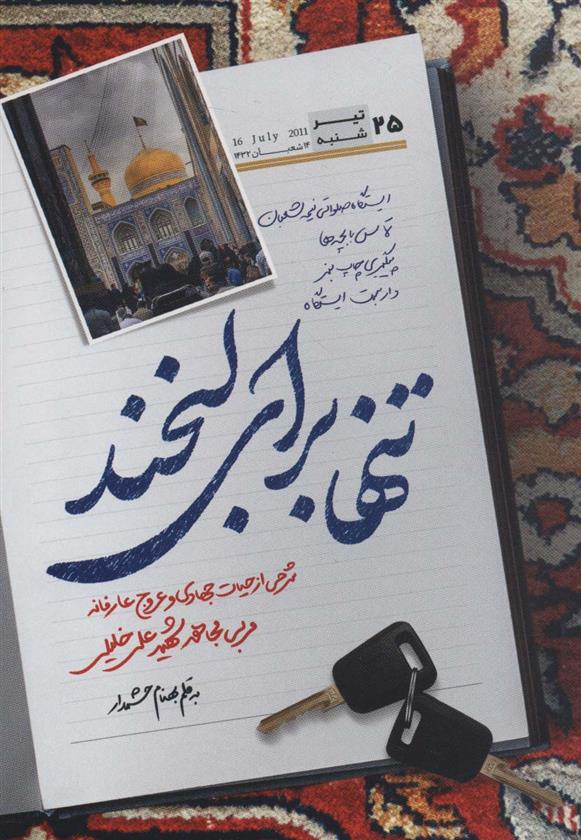 ۲۵
تیر
شنبه
16 July 2011
۱۴ شعبان ۱۴۳۲
ایستگاه صلواتی نیمه شعبان
کلاس با بچه‌ها
پیگیری چاپ بنر
داربست ایستگاه
تنها برای لبخند
شرحی از حیات جهادی و عروج عارفانه
مربی مجاهد شهید علی خلیلی
به قلم بهنام حشمدار